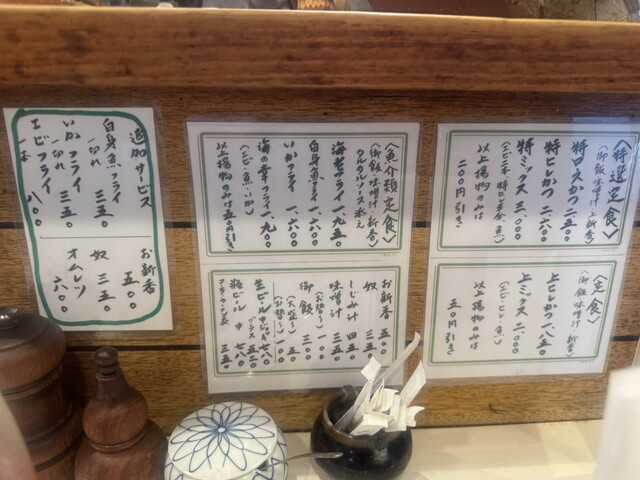 〈特選定食〉
(御飯・味噌汁・上新香)
特ロースかつ 二、五〇〇
特ヒレかつ 二、六〇〇
特ミックス 三、〇〇〇
以上揚物のみは
二〇〇円引き
〈定食〉
(御飯・味噌汁・新香)
上ヒレかつ 一、八五〇
上ミックス 二、〇〇〇
(エビ・ヒレ・魚)
以上揚物のみは
五〇円引き
〈魚介類定食〉
(御飯・味噌汁・新香)
タルタルソース添え
海老フライ 一、九五〇
白身魚フライ 一、六〇〇
いかフライ 一、六〇〇
海の幸フライ 一、九〇〇
(エビ・魚・いか)
以上揚物のみは五〇円引き
お新香 五〇〇
奴 三五〇
しじみ汁 四五〇
味噌汁 三五〇
(お替り) 一〇〇
御飯 三五〇
生ビール
瓶ビール
追加サービス
白身魚フライ
一切れ 三五〇
いかフライ
一切れ 三五〇
エビフライ
一本 八〇〇
お新香 五〇〇
奴 三五〇
オムレツ 六〇〇